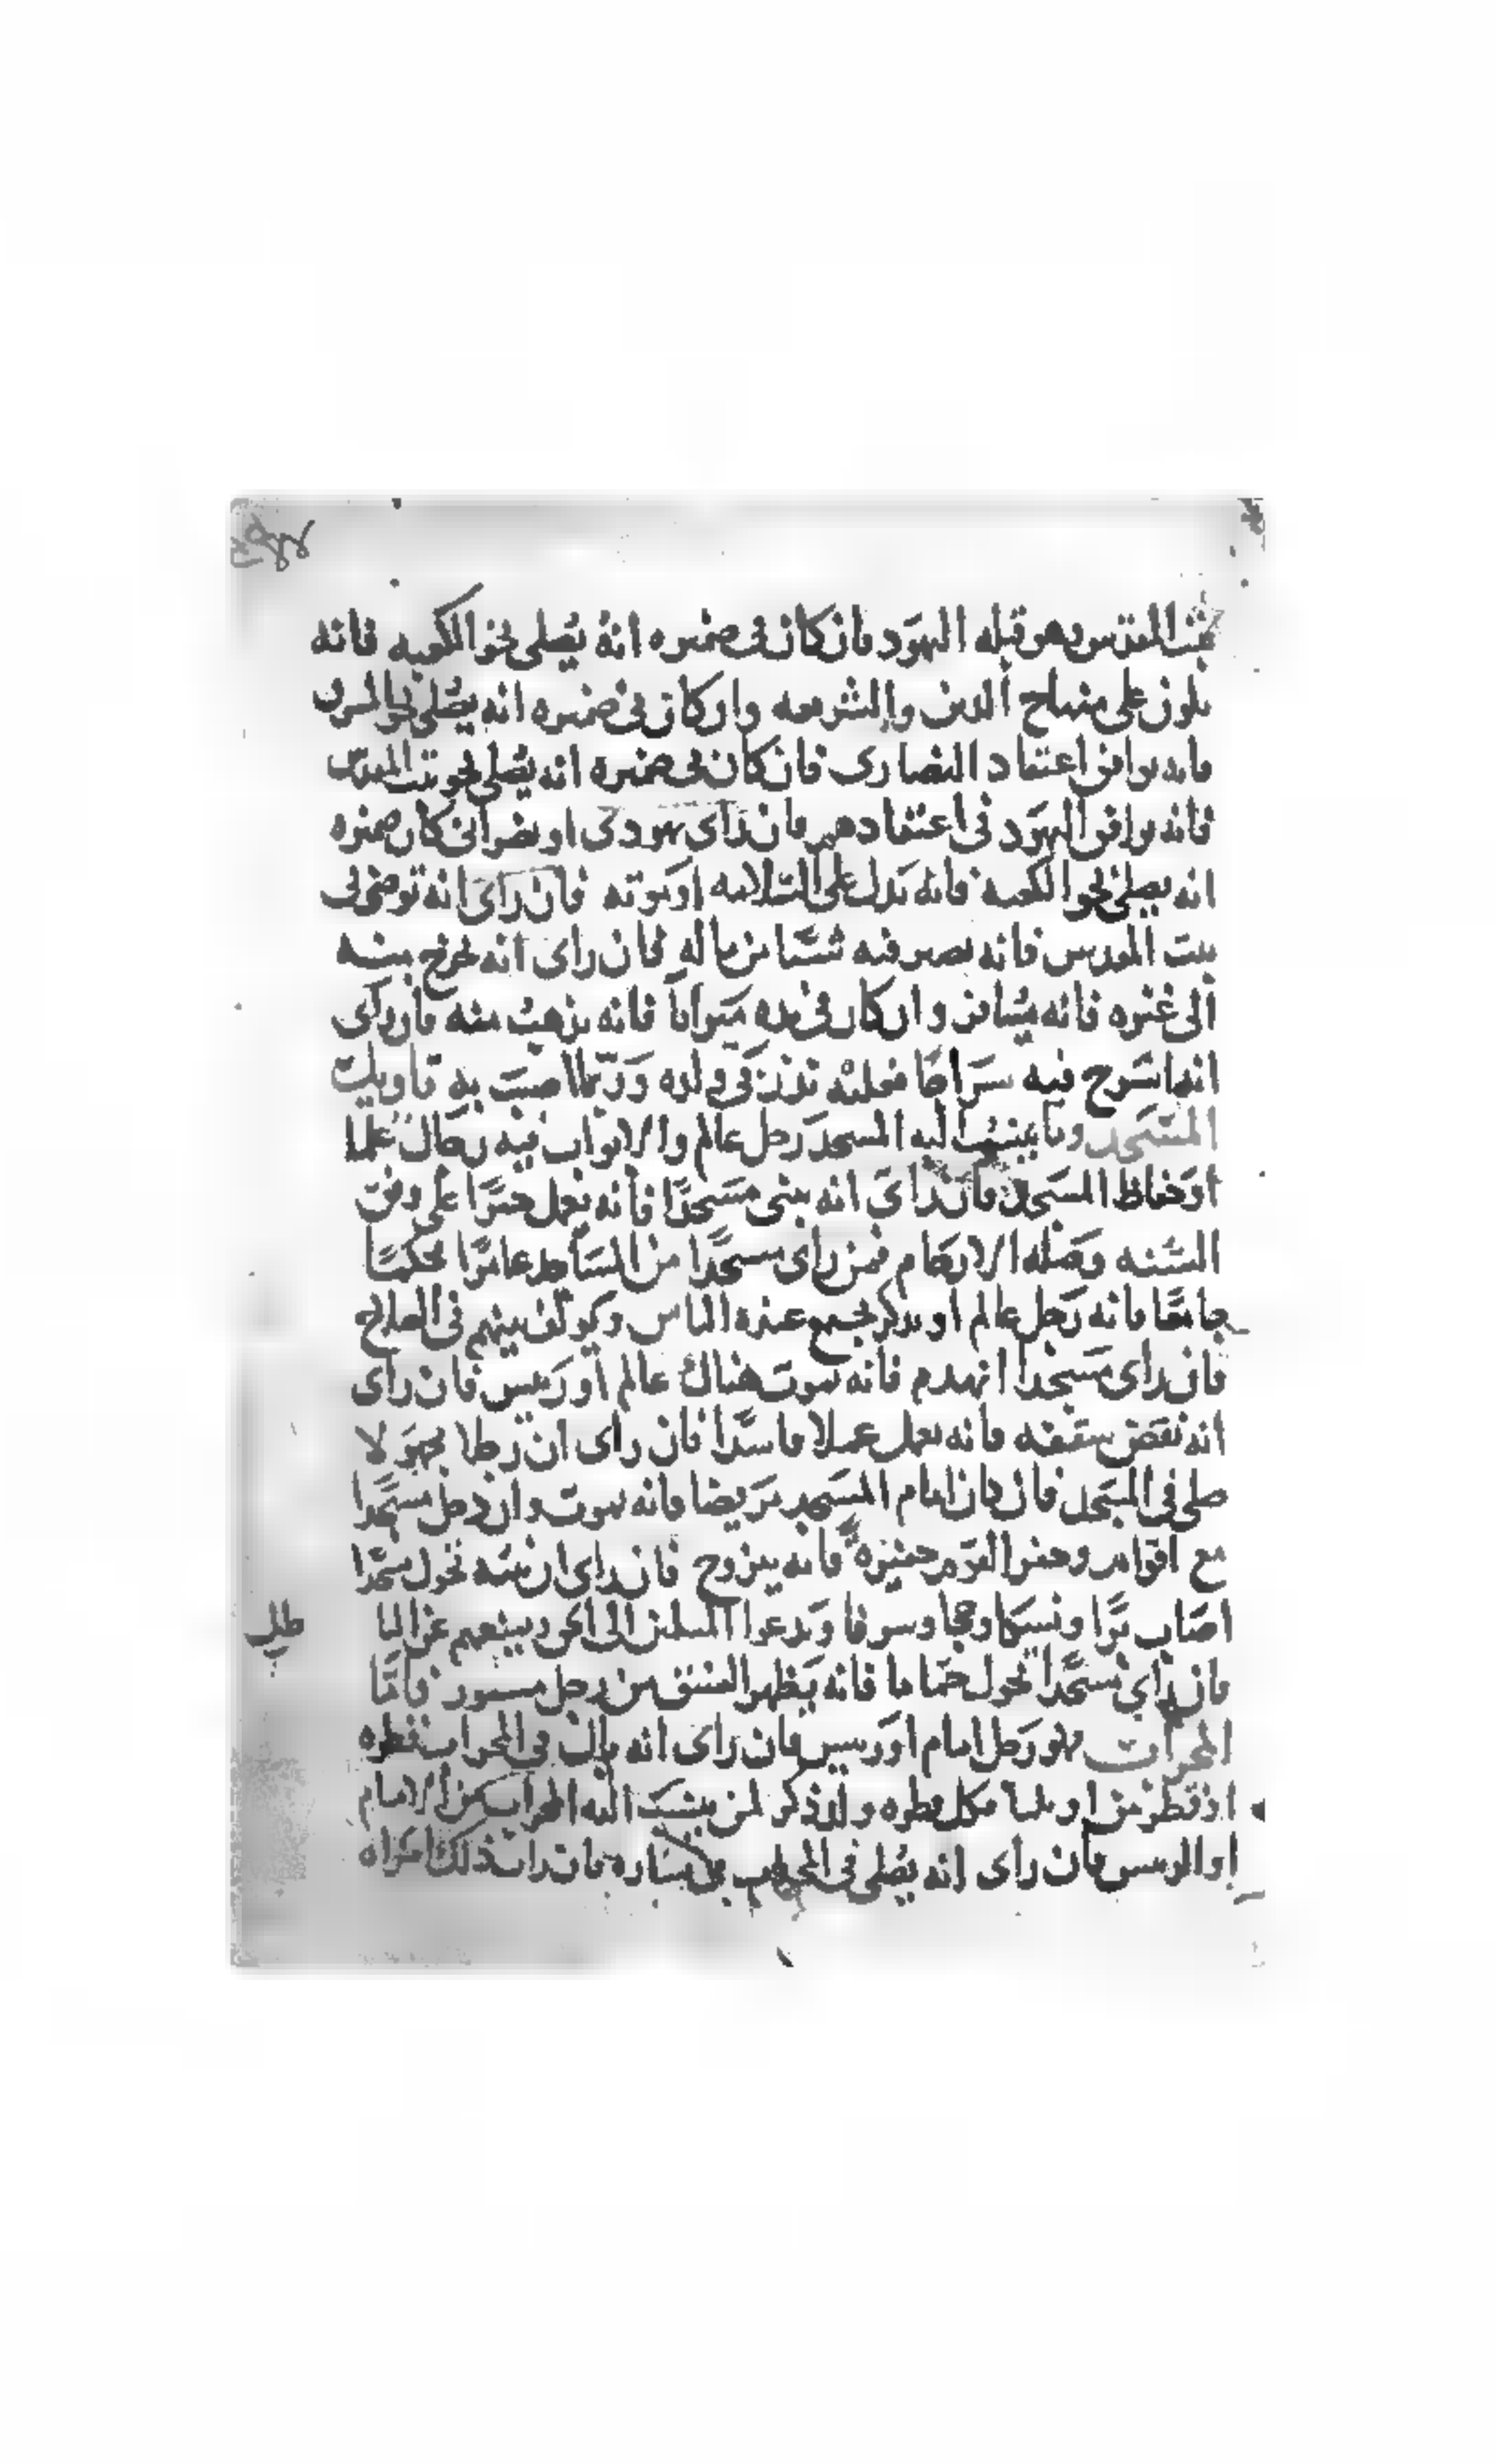 بيت المقدس وهو قبله اليهود فان كان فى ضميره انه يصلى نحو الكعبه فانه
يكون على منهاج الدين والشريعه وان كان فى ضميره انه يصلى نحو المشرق
فانه يوافق اعتقاد النصارى فان كان فى ضميره انه يصلى نحو بيت المقدس
فانه يوافق اليهود فى اعتقادهم فان راى يهودى او نصرانى كان ضميره
انه يصلى نحو الكعبه فانه يدل على السلامه او موته فان راى انه توضى فى
بيت المقدس فانه يصير فيه شيئا من ماله فان راى انه يخرج منه
الى غيره فانه يسافر وان كان فى يده ميراثا فانه يذهب منه فان راى
انه اسرج فيه سراجا فعليه نذر فى ولده وربما اصيب به تاويل
المسجد وما ينتهى اليه المسجد رجل عالم والابواب فيه رجال علما
او حفاظ المسجد فان راى انه بنى مسجدا فانه يعمل خيرا على وفق
السنه وصله الارحام فمن راى مسجدا من المساجد عامرا محكما
جامعا فانه رجل عالم او مذكر يجمع عنده الناس ويولف بينهم فى الصلاح
فان راى مسجدا انهدم فانه يموت هناك عالم او رئيس فان راى
انه نقض سقيفه فانه يعمل عملا فاسدا فان راى ان رجلا مجهولا
صلى فى المسجد فان كان امام المسجد مريضا فانه يموت وان دخل مسجدا
مع اقوام وحفروا القوم حفيره فانه يتزوج فان راى ان بيته تحول مسجدا
اصاب برا ونسكا وحجا وشرفا ويدعوا المسلمين الى الحق ويمنعهم عن
فان راى مسجدا تحول حماما فانه يظهر الفسق من رجل مستور فاما
المحراب فهو رجل امام او رئيس فان راى انه بال فى المحراب قطره
او قطرتين او ثلثا فكل قطره ولد ذكر لمن ينسب اليه المحراب من الامام
او الرئيس فان راى انه يصلى فى المحراب فان رات ذلك امراه